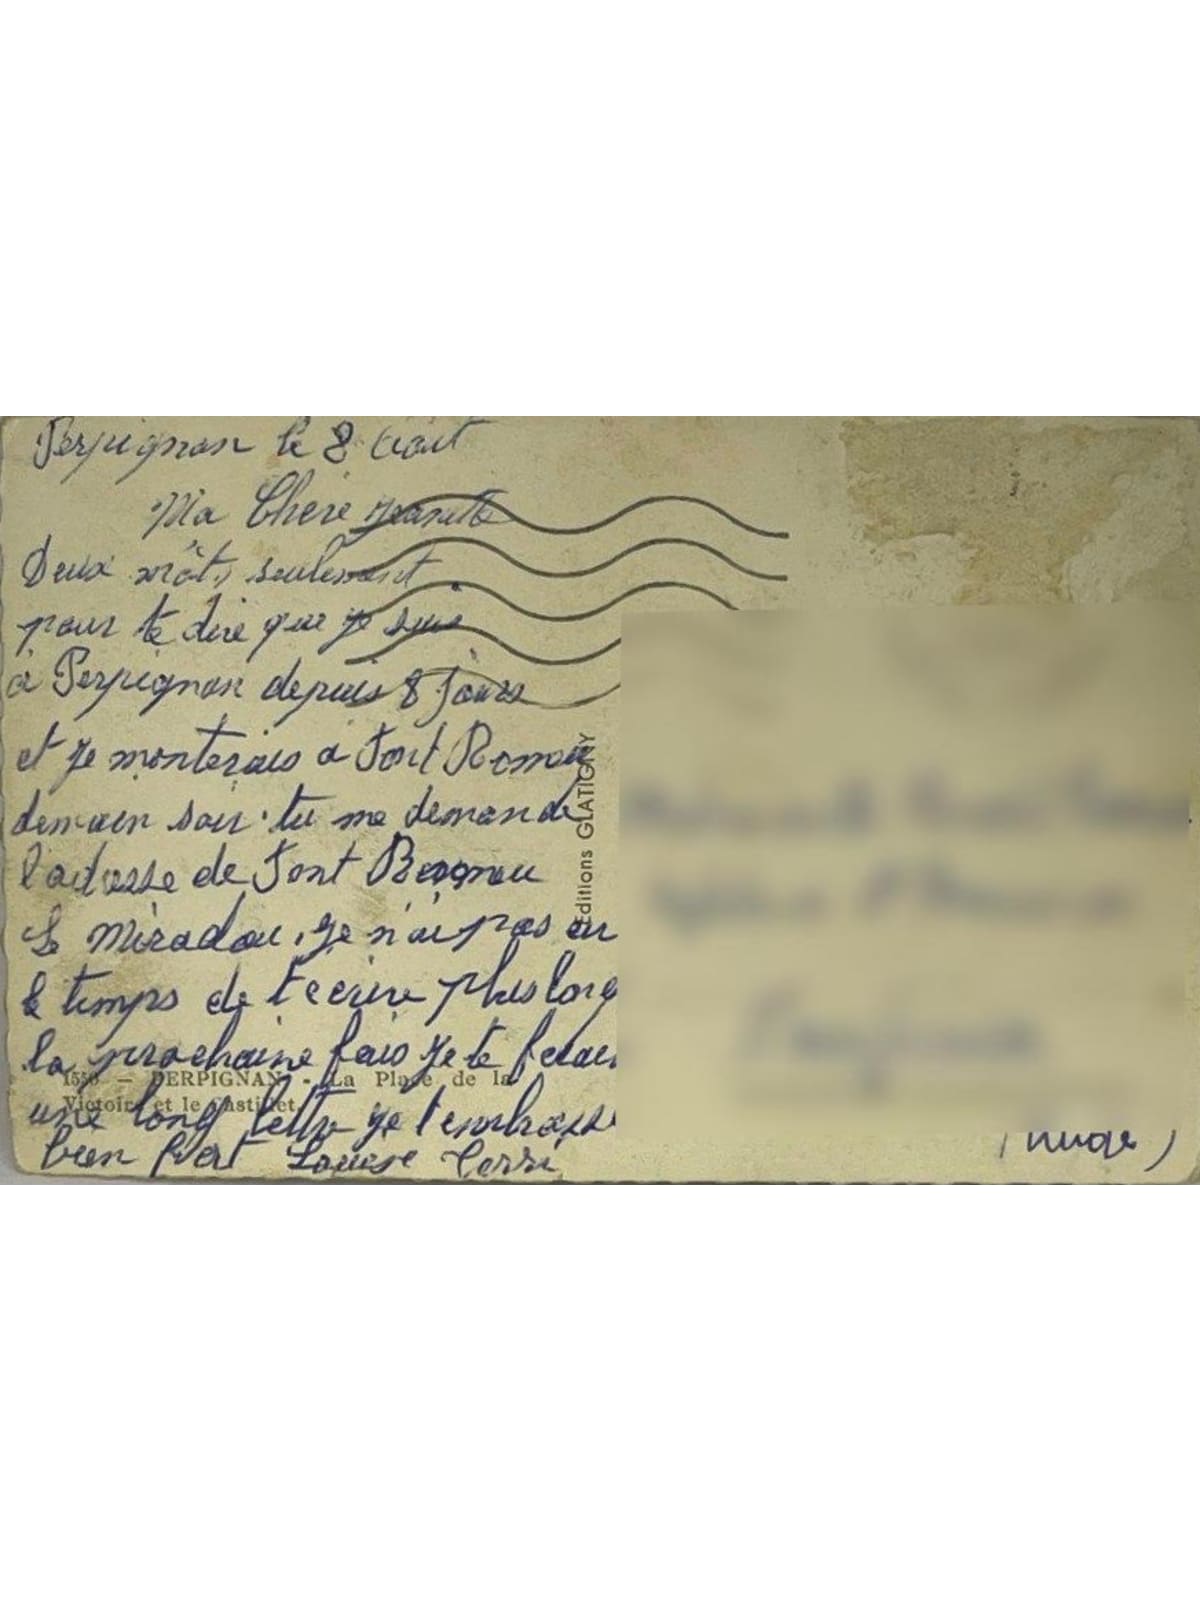 Perpignan le 8 Aout
Ma Chère Jeanette
Deux môts seulement
pour te dire que je suis
à Perpignan depuis 8 jours
et je monterais a Font Romeu
demain soir. tu me demande
l'adresse de Font Romeu
Le Miradou, je n'ai pas eu
le temps de t'ecrire plus long
la prochaine fois je te ferais
une long lettre je t'embrasse
bien fort Louise
1550 — PERPIGNAN - La Place de la
Victoire et le Castillet.
Editions GLATIGNY
(Aude)